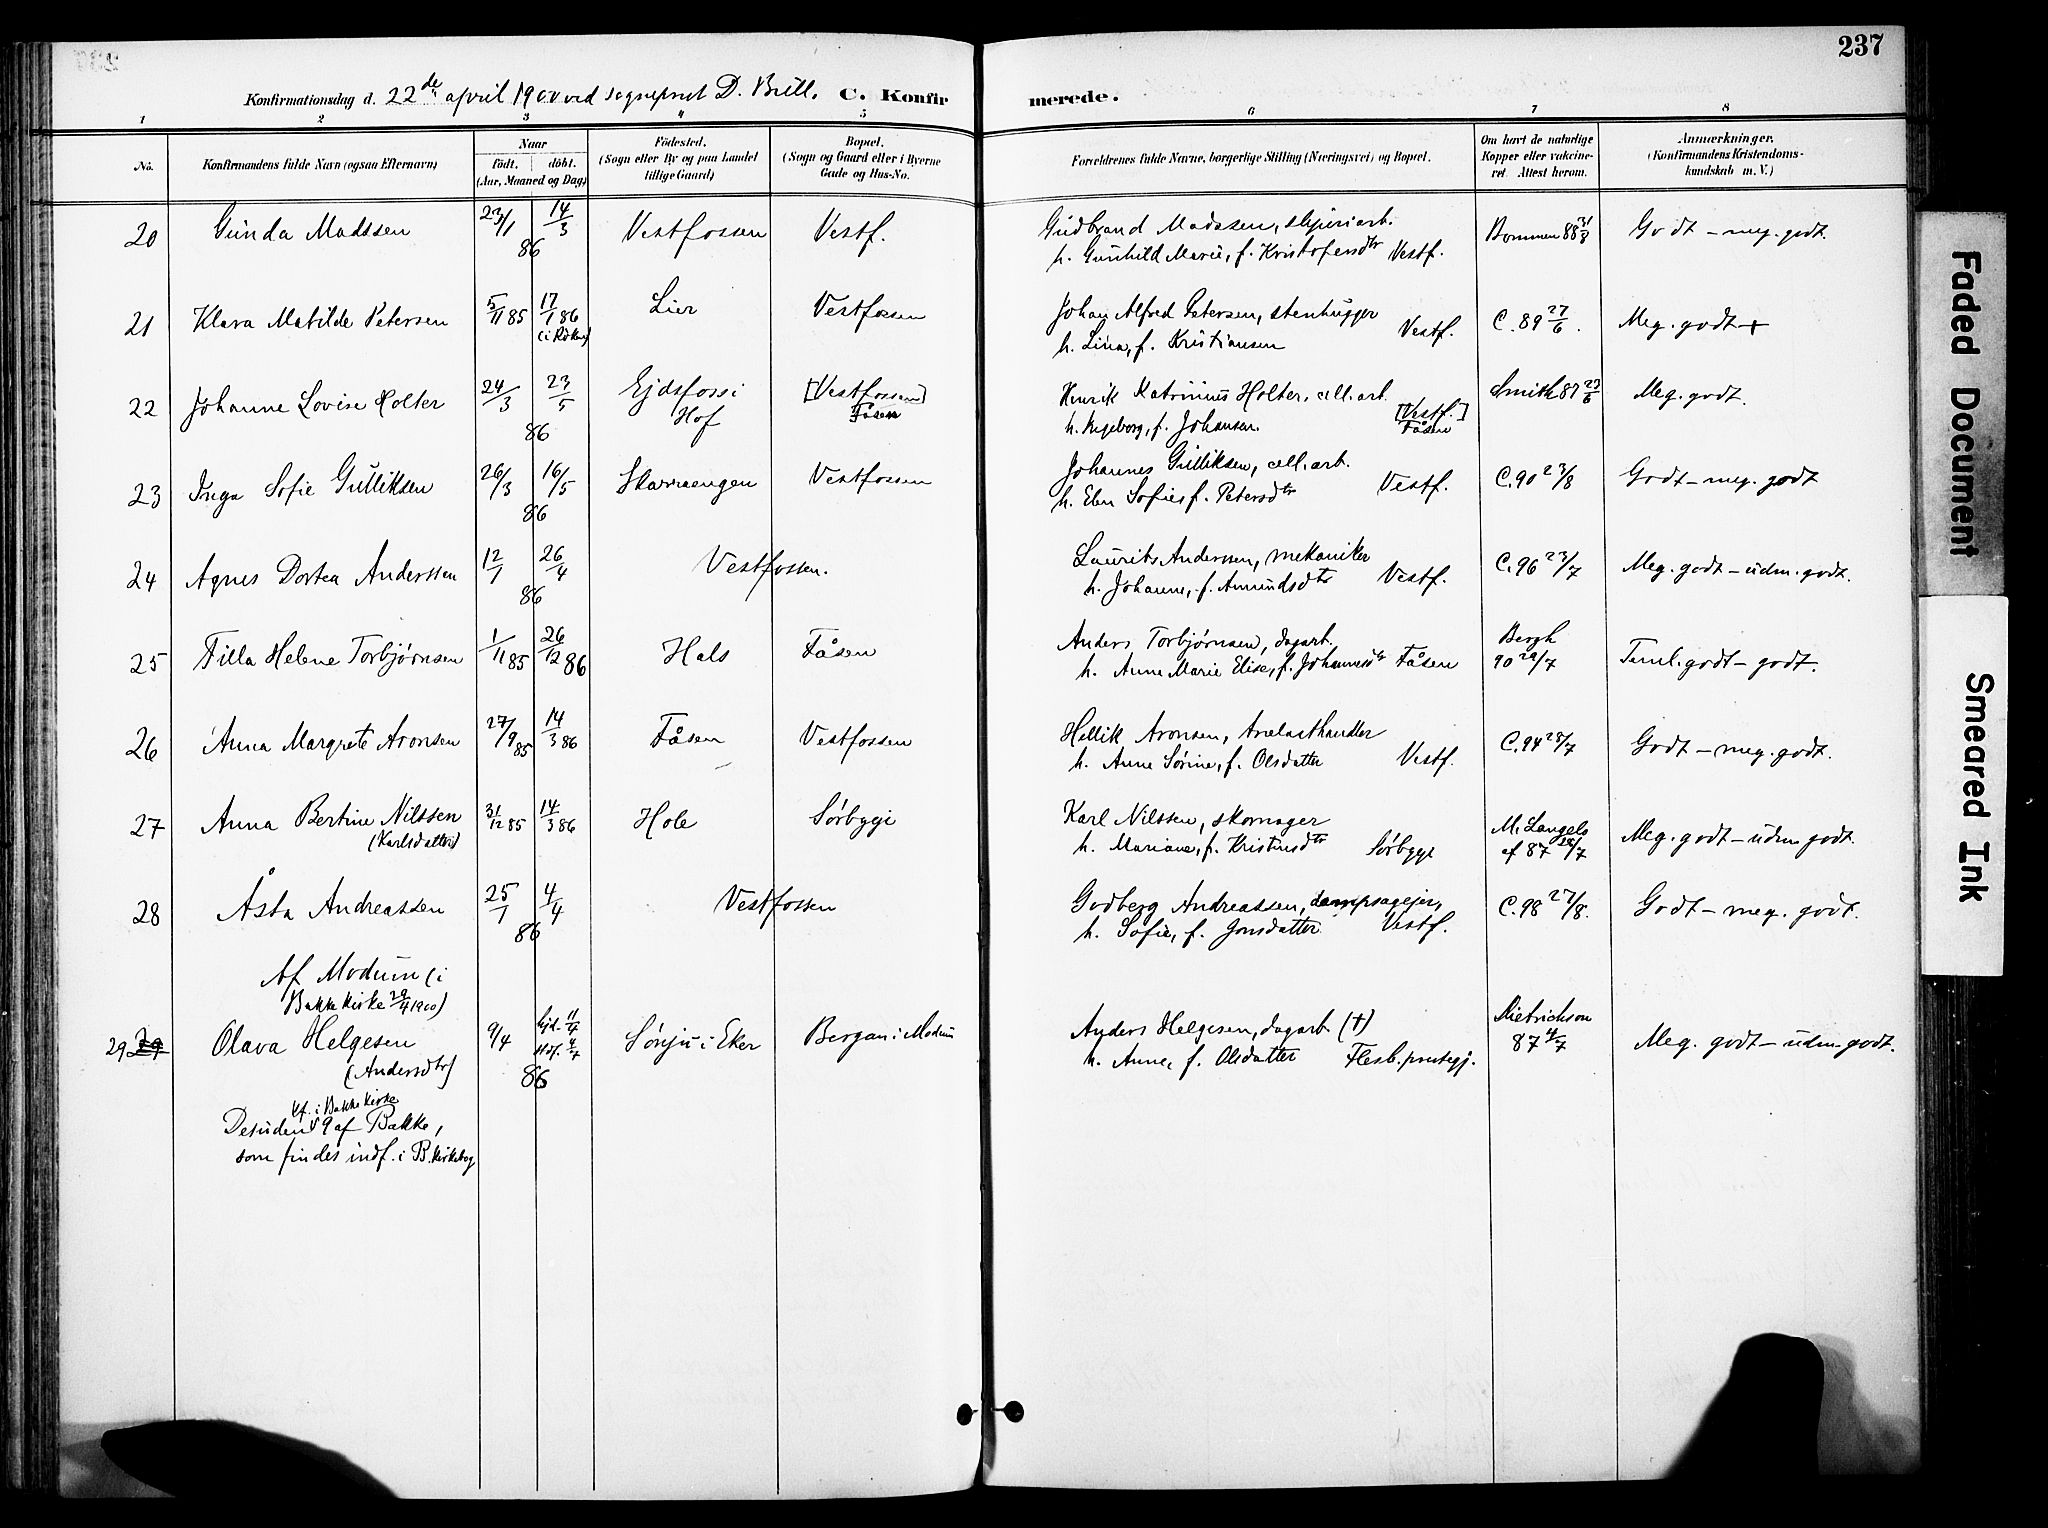 237
Konfirmationsdag d. 22de april 1900 ved sogneprest D. Brill. C. Konfirmerede.
1 2 3 4 5 6 7 8
No.
Konfirmandens fulde Navn (ogsaa Efternavn)
Naar
födt. döbt.
(Aar, Maaned og Dag)
Födested.
(Sogn eller By og paa Landet
tillige Gaard)
Bopæl.
(Sogn og Gaard eller i Byerne
Gade og Hus-No.
Forældrenes fulde Navne, borgerlige Stilling (Næringsvei) og Bopæl.
Om havt de naturlige
Kopper eller vakcine-
ret. Attest herom.
Anmærkninger.
(Konfirmandens Kristendoms-
kundskab m. V.)
20 Gunda Madssen 23/1 14/3 86 Vestfossen Vestf. Gudbrand Madssen, sliperiarb. Bommen 88 31/8 Godt – meg. godt.
h. Gunhild Marie, f. Kristofersdtr Vestf.
21 Klara Matilde Petersen 5/11 85 17/1 86 (i Röken) Lier Vestfossen Johan Alfred Petersen, stenhugger Vestf. C. 89 27/6. Meg. godt +
h. Lina, f. Kristiansen
22 Johanne Lovise Holter 24/3 23/5 86 Ejdsfoss i Hof [Vestfossen] Fåsen Henrik Katrinius Holter, cell. arb. [Vestf.] Fåsen Smith 87 23/6 Meg. godt.
h. Ingeborg, f. Johansen.
23 Inga Sofie Gulliksen 26/3 16/5 86 Skarraengen Vestfossen Johannes Gulliksen, cell. arb. Vestf. C. 90 23/8 Godt – meg. godt
h. Elen Sofie, f. Petersdtr
24 Agnes Dortea Anderssen 12/1 26/4 86 Vestfossen. Laurits Anderssen, mekaniker Vestf. C. 96 23/7 Meg. godt – udm. godt.
h. Johanne, f. Amundsdtr
25 Filla Helene Torbjørnsen 1/11 85 26/12 86 Hals Fåsen Anders Torbjørnsen, dagarb. Bergh 90 29/7 Teml. godt – godt.
h. Anne Marie Elise, f. Johannesdtr Fåsen
26 Anna Margrete Aronsen 27/9 85 14/3 86 Fåsen Vestfossen Hellik Aronsen, trælasthandler Vestf. C. 94 28/7 Godt – meg. godt.
h. Anne Sørine, f. Olsdatter
27 Anna Bertine Nilssen (Karlsdatter) 31/12 85 14/3 86 Hole Sørbygt Karl Nilssen, skomager M. Langels af 87 28/7 Meg. godt – udm. godt.
h. Mariane, f. Kristensdtr Sørbygt
28 Åsta Andreassen 25/1 4/4 86 Vestfossen Godberg Andreassen, dampsagejer, C. 98 27/8. Godt – meg. godt.
h. Sofie, f. Jonsdatter Vestf.
Af Modum (i
Bakke Kirke 29/4 1900)
29 29 Olava Helgesen (Andersdtr) 9/4 hjd. 11/4 stf. 4/7 86 Sønju i Eker Bergan i Modum Anders Helgesen, dagarb. (†) Dietrichson 87 4/7 Meg. godt – udm. godt.
h. Anne, f. Olsdatter Flesb. prestegj.
kf. i Bakke Kirke
Desuden 9 af Bakke,
som findes indf. i B. Kirkebog
Faded Document
Smeared Ink